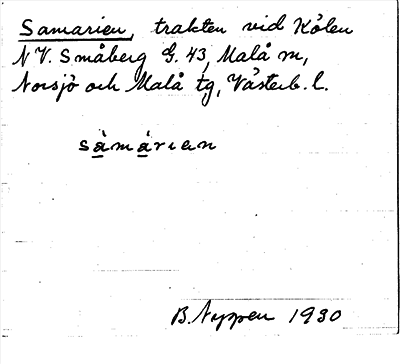 Samarien, trakten vid Kölen
NV. Småberg G. 43, Malå m,
Norsjö och Malå tg, Västerb. l.
sàmárien
B. Nyppen 1930